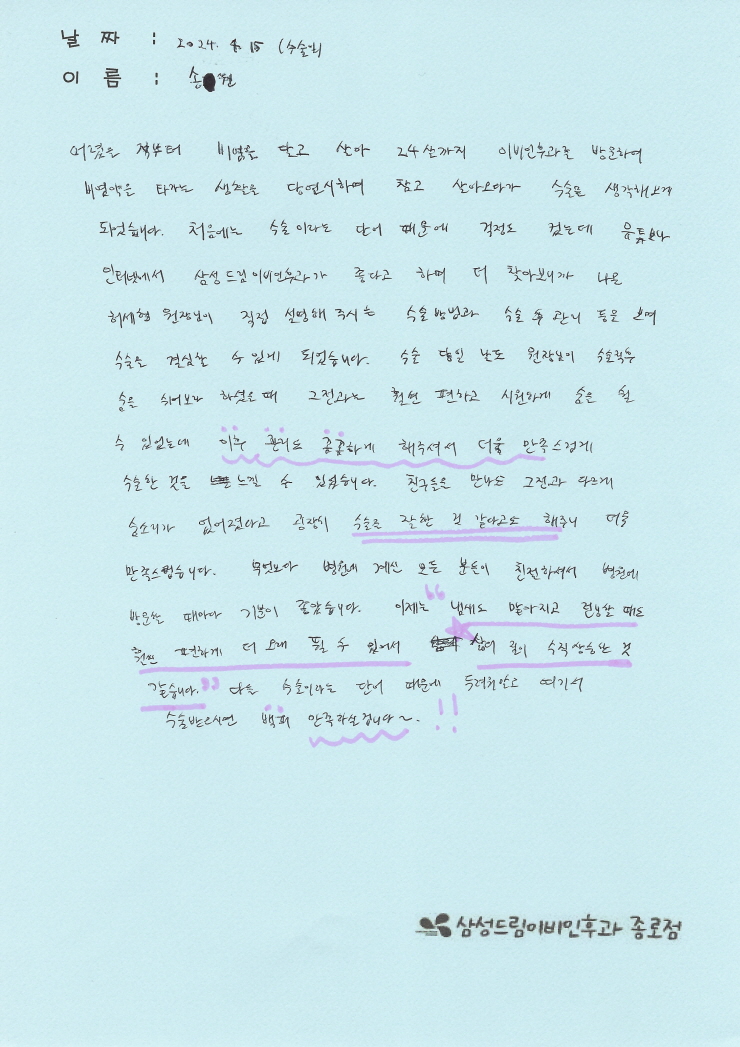 날 짜 : 2024. 8. 15 (수술일)
이 름 : 손 원
어렸을 적부터 비염을 달고 살아 24살까지 이비인후과를 방문하여
비염약은 타가는 생활을 당연시하며 참고 살아오다가 수술을 생각해보게
되었습니다. 처음에는 수술이라는 단어 때문에 걱정도 컸는데 유튜브나
인터넷에서 삼성드림이비인후과가 좋다고 하며 더 찾아보니까 나온
허세형 원장님이 직접 설명해주시는 수술방법과 수술 후 관리 등을 보며
수술을 결심할 수 있게 되었습니다. 수술 당일 날도 원장님이 수술직후
숨을 쉬어보라 하셨을 때 그전과는 훨씬 편하고 시원하게 숨을 쉴
수 있었는데 이후 관리도 꼼꼼하게 해주셔서 더욱 만족스럽게
수술한 것을 느낄 수 있었습니다. 친구들을 만나도 그전과 다르게
숨소리가 없어졌다고 굉장히 수술을 잘한 것 같다고도 해주니 더욱
만족스럽습니다. 무엇보다 병원에 계신 모든 분들이 친절하셔서 병원에
방문할 때마다 기분이 좋았습니다. 이제는 "냄새도 맡아지고 런닝할 때도
훨씬 편하게 더 오래 뛸 수 있어서 삶의 질이 수직상승한 것
같습니다." 다들 수술이라는 단어 때문에 두려워않고 여기서
수술받으시면 백퍼 만족하실겁니다~. !!
삼성드림이비인후과 종로점